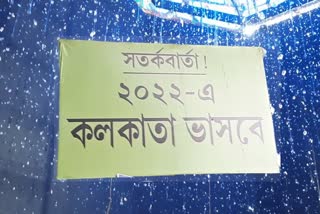 সতর্কবার্তা!
২০২২-এ
কলকাতা ভাসবে